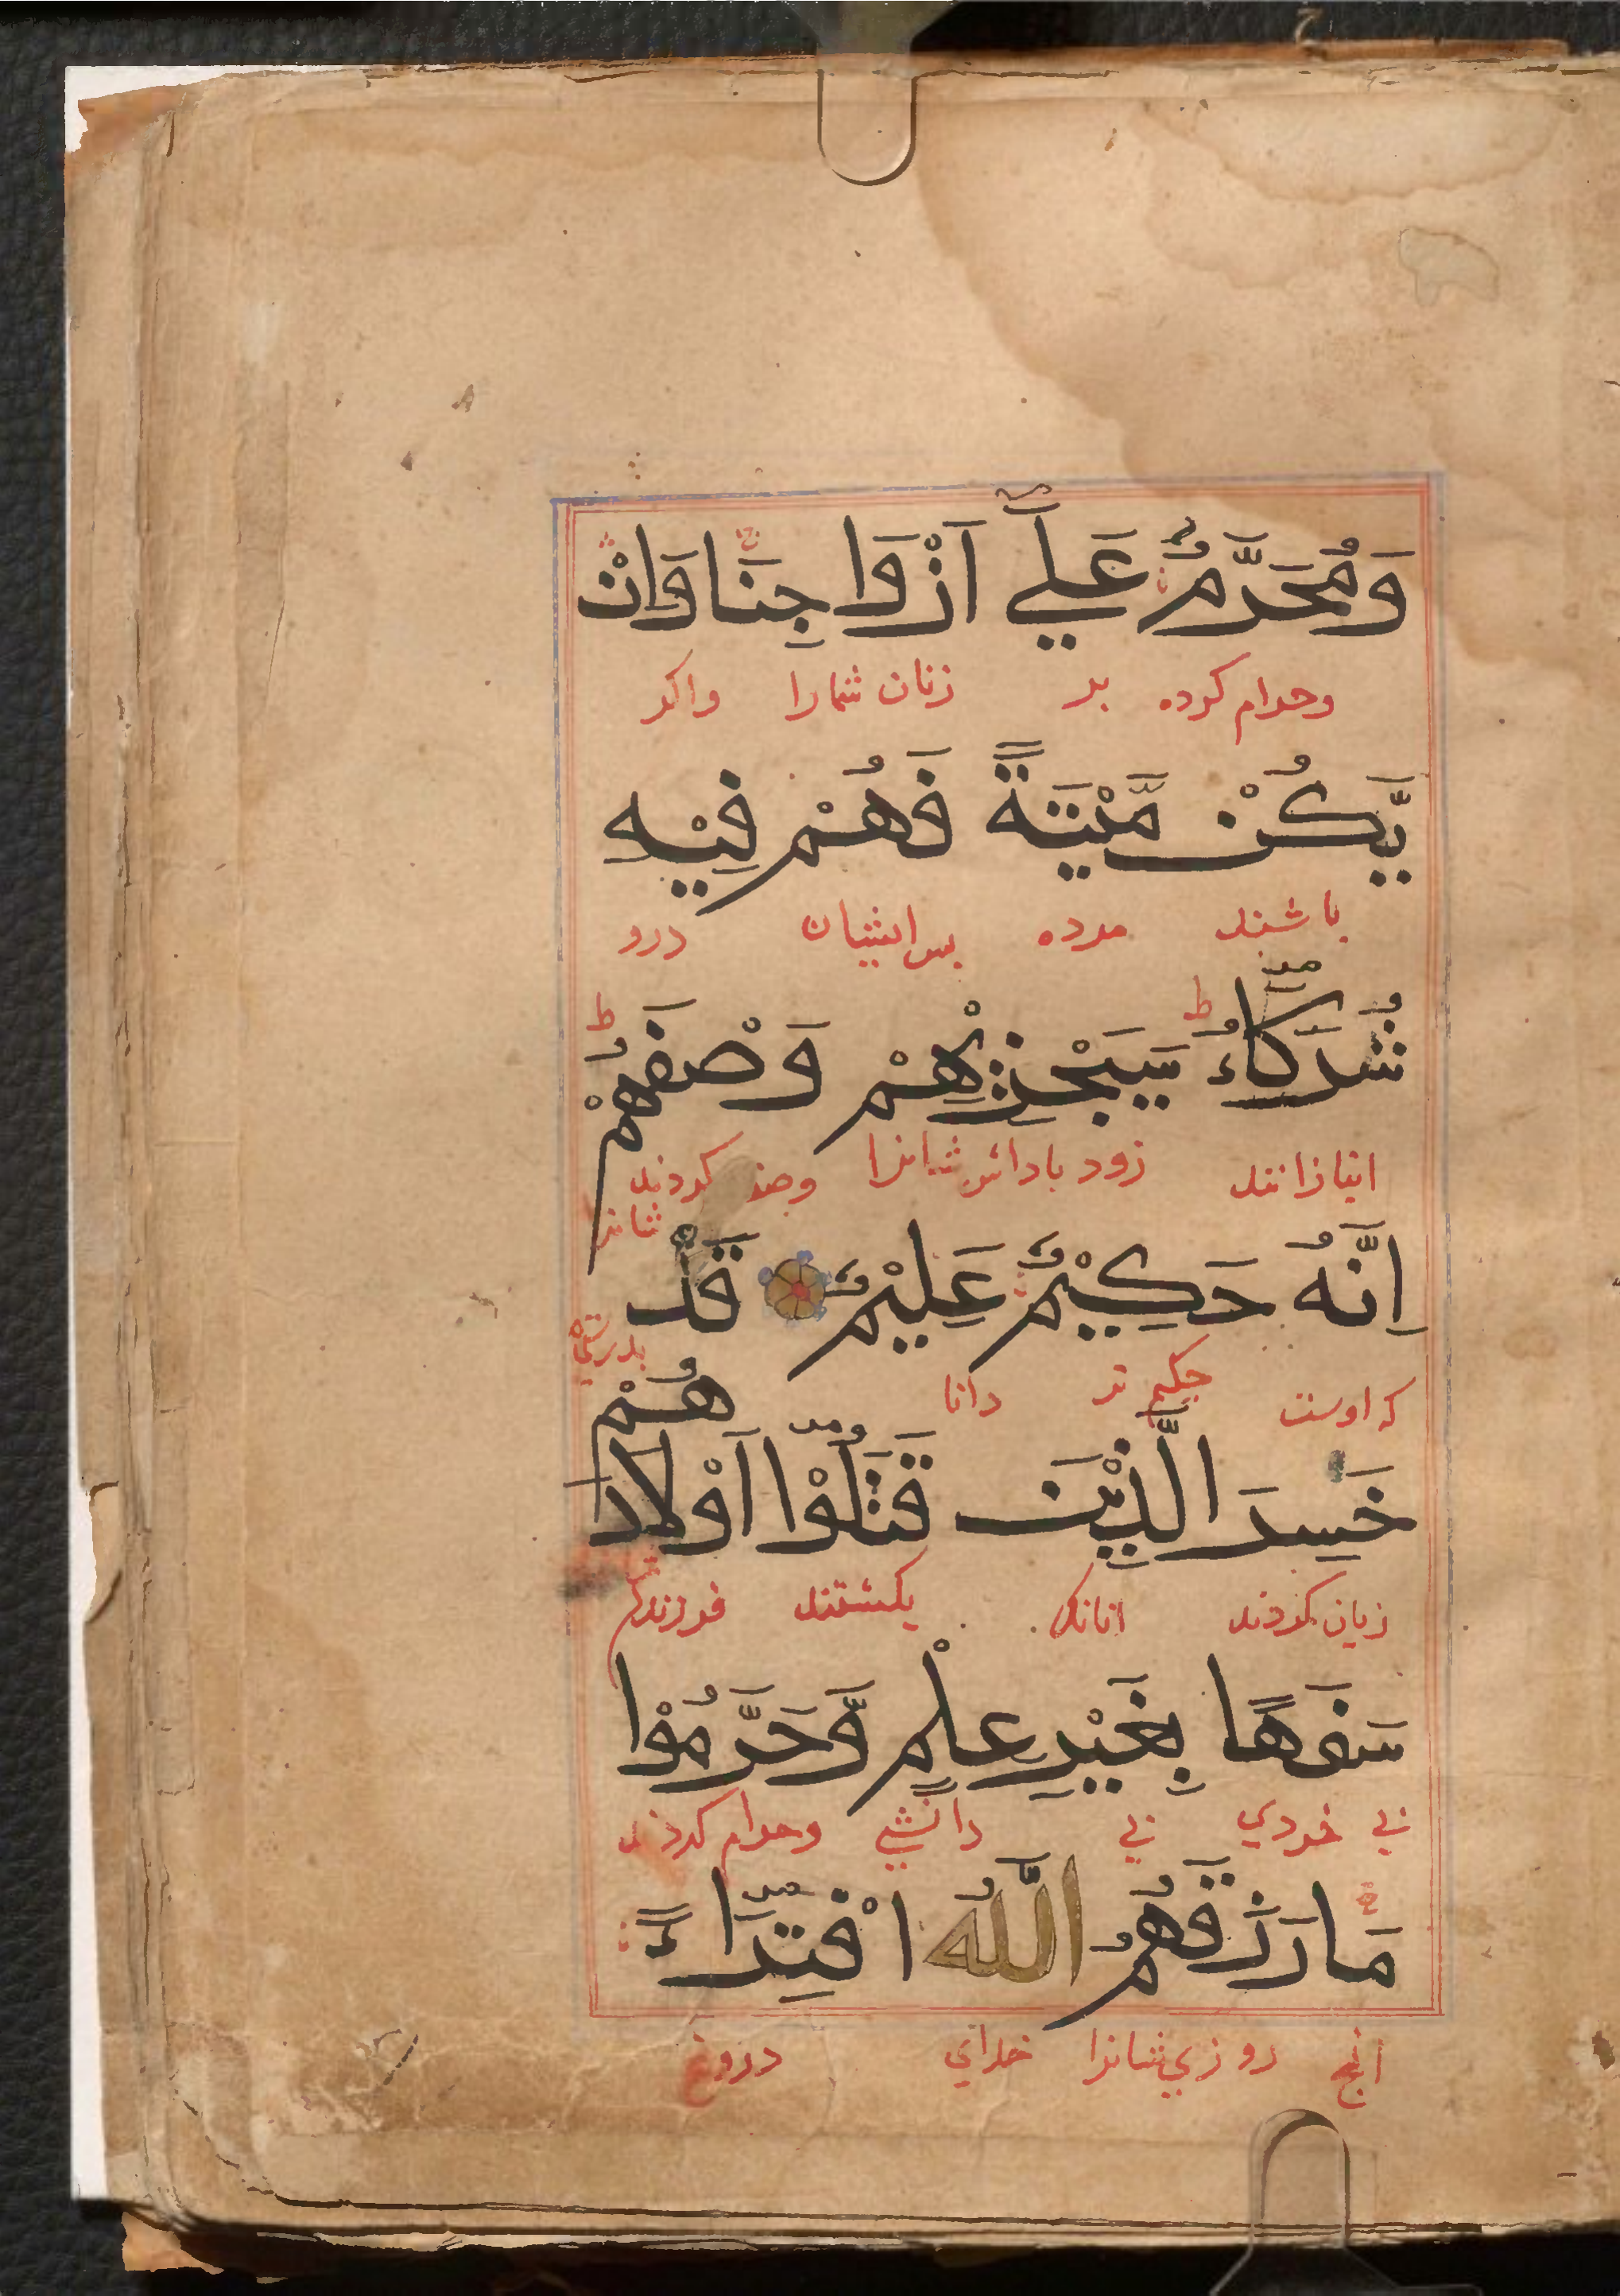 وَمُحَرَّمٌ عَلٰٓي اَزْوَاجِنَا وَاِنْ
وحرام کرده بر زنان شمارا واکر
يَّكُنْ مَّيْتَةً فَهُمْ فِيْهِ
باشند مرده پس ایشان درو
شُرَكَآءُ ط سَيَجْزِيْهِمْ وَصْفَهُمْ ط
انبازانند زود باداش شانرا وصف کردند
شانرا
اِنَّهُ حَكِيْمٌ عَلِيْمٌ قَدْ
که اوست حکیم تر دانا بدرستی
خَسِرَ الَّذِيْنَ قَتَلُوْٓا اَوْلَادَهُمْ
زیان کردند انانک بکشتند فرزندان
سَفَهًا بِغَيْرِ عِلْمٍ وَّحَرَّمُوْا
بي خردي بي دانشي وحرام کردند
مَا رَزَقَهُمُ اللّٰهُ افْتِرَآءً
انچ روزي شانرا خداي دروغ